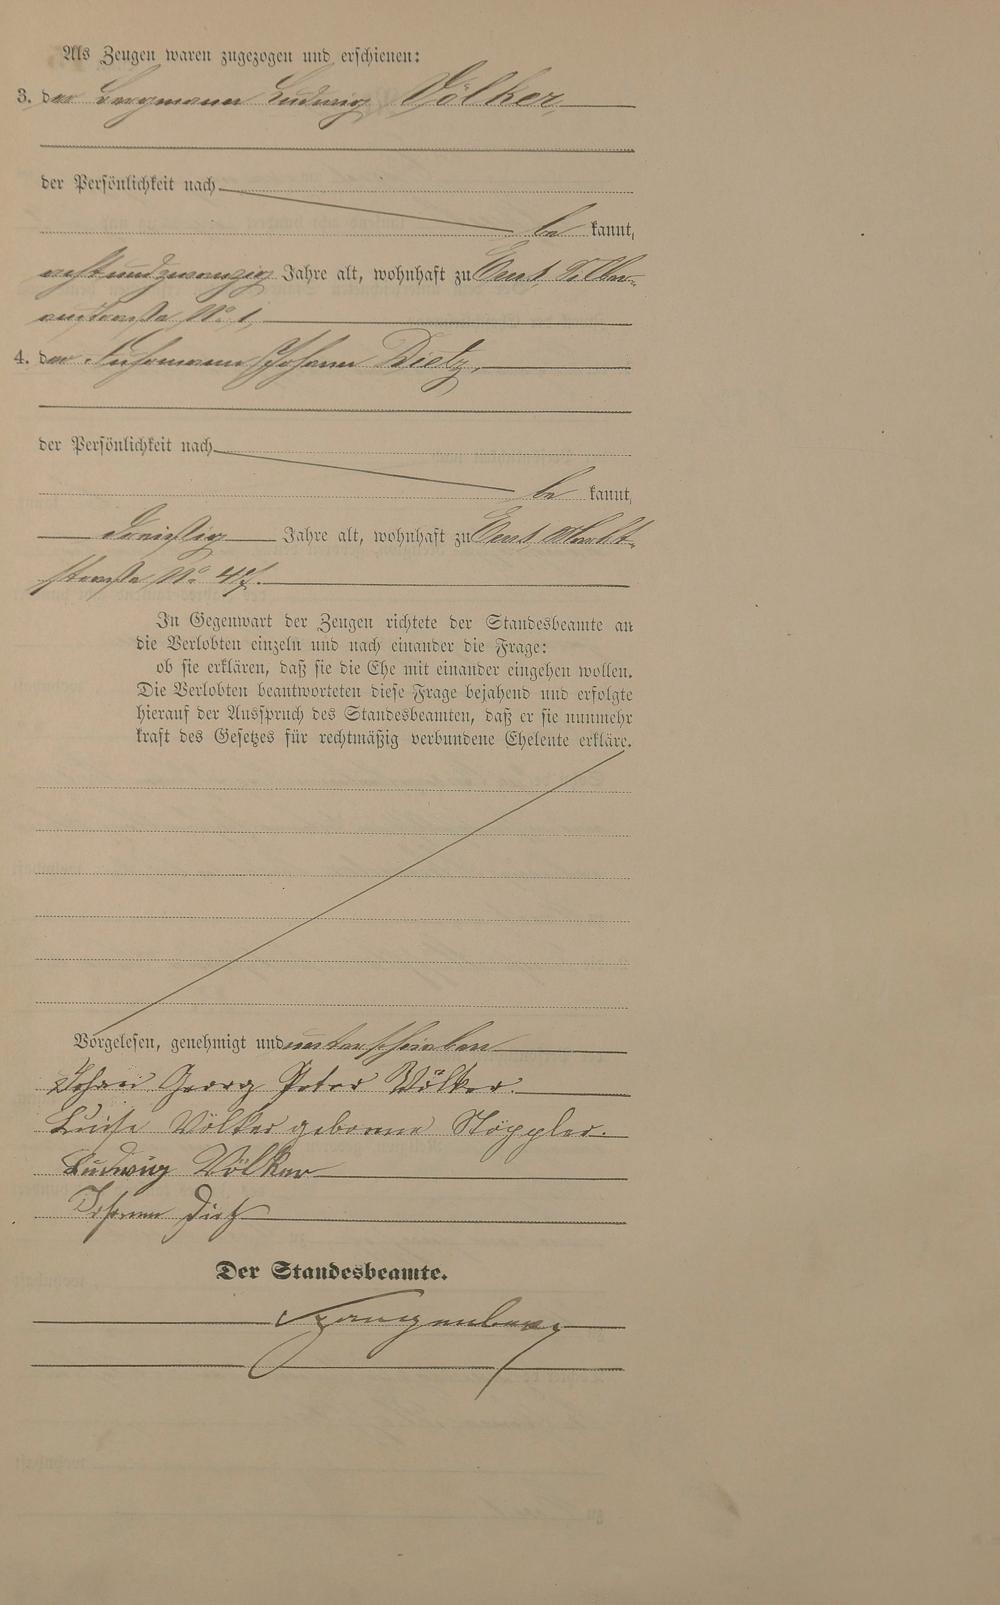 Als Zeugen waren zugezogen und erschienen:
3. der Bergmann Ludwig Völker,
der Persönlichkeit nach
be kannt,
achtundzwanzig Jahre alt, wohnhaft zu
straße No 1,
4. der Fuhrmann Johann Dietz,
der Persönlichkeit nach
be kannt,
dreißig Jahre alt, wohnhaft zu Markt-
straße No 47.
In Gegenwart der Zeugen richtete der Standesbeamte an
die Verlobten einzeln und nach einander die Frage:
ob sie erklären, daß sie die Ehe mit einander eingehen wollen.
Die Verlobten beantworteten diese Frage bejahend und erfolgte
hierauf der Ausspruch des Standesbeamten, daß er sie nunmehr
kraft des Gesetzes für rechtmäßig verbundene Eheleute erkläre.
Vorgelesen, genehmigt und unterschrieben
Johann Georg Peter Völker.
Luise Völker geborene Stöppler.
Ludwig Völker
Johann Dietz
Der Standesbeamte.